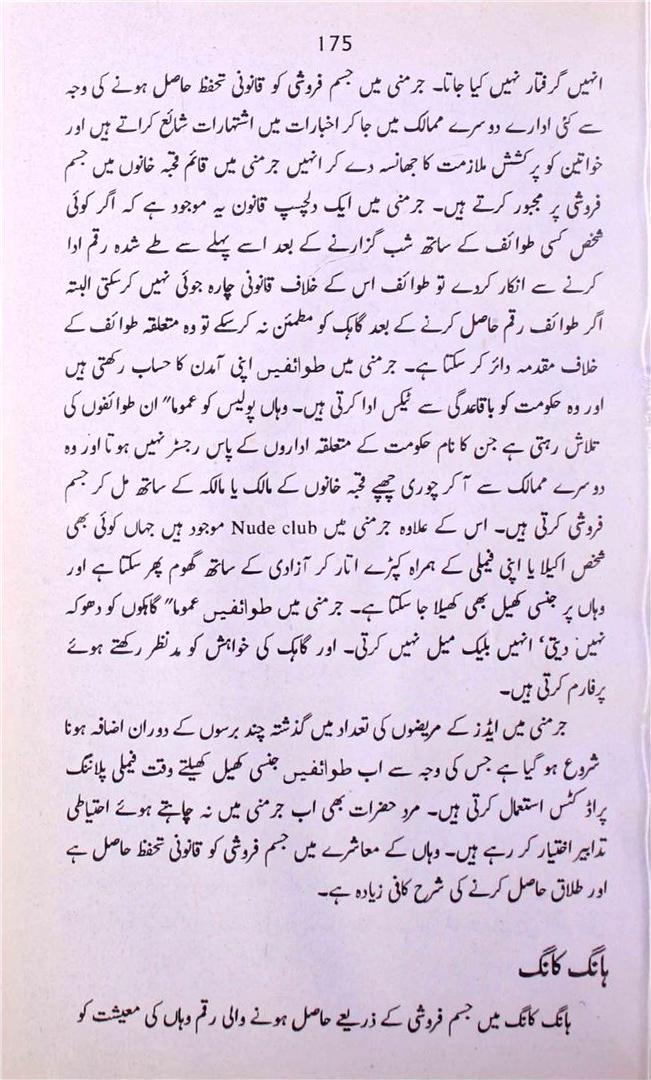 175
انہیں گرفتار نہیں کیا جاتا۔ جرمنی میں جسم فروشی کو قانونی تحفظ حاصل ہونے کی وجہ
سے کئی ادارے دوسرے ممالک میں جا کر اخبارات میں اشتہارات شائع کراتے ہیں اور
خواتین کو پرکشش ملازمت کا جھانسہ دے کر انہیں جرمنی میں قائم قحبہ خانوں میں جسم
فروشی پر مجبور کرتے ہیں۔ جرمنی میں ایک دلچسپ قانون یہ موجود ہے کہ اگر کوئی
شخص کسی طوائف کے ساتھ شب گزارنے کے بعد اسے پہلے سے طے شدہ رقم ادا
کرنے سے انکار کردے تو طوائف اس کے خلاف قانونی چارہ جوئی نہیں کرسکتی البتہ
اگر طوائف رقم حاصل کرنے کے بعد گاہک کو مطمئن نہ کرسکے تو وہ متعلقہ طوائف کے
خلاف مقدمہ دائر کر سکتا ہے۔ جرمنی میں طوائفیں اپنی آمدن کا حساب رکھتی ہیں
اور وہ حکومت کو باقاعدگی سے ٹیکس ادا کرتی ہیں۔ وہاں پولیس کو عموما" ان طوائفوں کی
تلاش رہتی ہے جن کا نام حکومت کے متعلقہ اداروں کے پاس رجسٹر نہیں ہوتا اور وہ
دوسرے ممالک سے آ کر چوری چھپے قحبہ خانوں کے مالک یا مالکہ کے ساتھ مل کر جسم
فروشی کرتی ہیں۔ اس کے علاوہ جرمنی میں Nude club موجود ہیں جہاں کوئی بھی
شخص اکیلا یا اپنی فیملی کے ہمراہ کپڑے اتار کر آزادی کے ساتھ گھوم پھر سکتا ہے اور
وہاں پر جنسی کھیل بھی کھیلا جا سکتا ہے۔ جرمنی میں طوائفیں عموما" گاہکوں کو دھوکہ
نہیں دیتی، انہیں بلیک میل نہیں کرتی۔ اور گاہک کی خواہش کو مدنظر رکھتے ہوئے
پرفارم کرتی ہیں۔
جرمنی میں ایڈز کے مریضوں کی تعداد میں گذشتہ چند برسوں کے دوران اضافہ ہونا
شروع ہو گیا ہے جس کی وجہ سے اب طوائفیں جنسی کھیل کھیلتے وقت فیملی پلاننگ
پراڈکٹس استعمال کرتی ہیں۔ مرد حضرات بھی اب جرمنی میں نہ چاہتے ہوئے احتیاطی
تدابیر اختیار کر رہے ہیں۔ وہاں کے معاشرے میں جسم فروشی کو قانونی تحفظ حاصل ہے
اور طلاق حاصل کرنے کی شرح کافی زیادہ ہے۔
ہانگ کانگ
ہانگ کانگ میں جسم فروشی کے ذریعے حاصل ہونے والی رقم وہاں کی معیشت کو